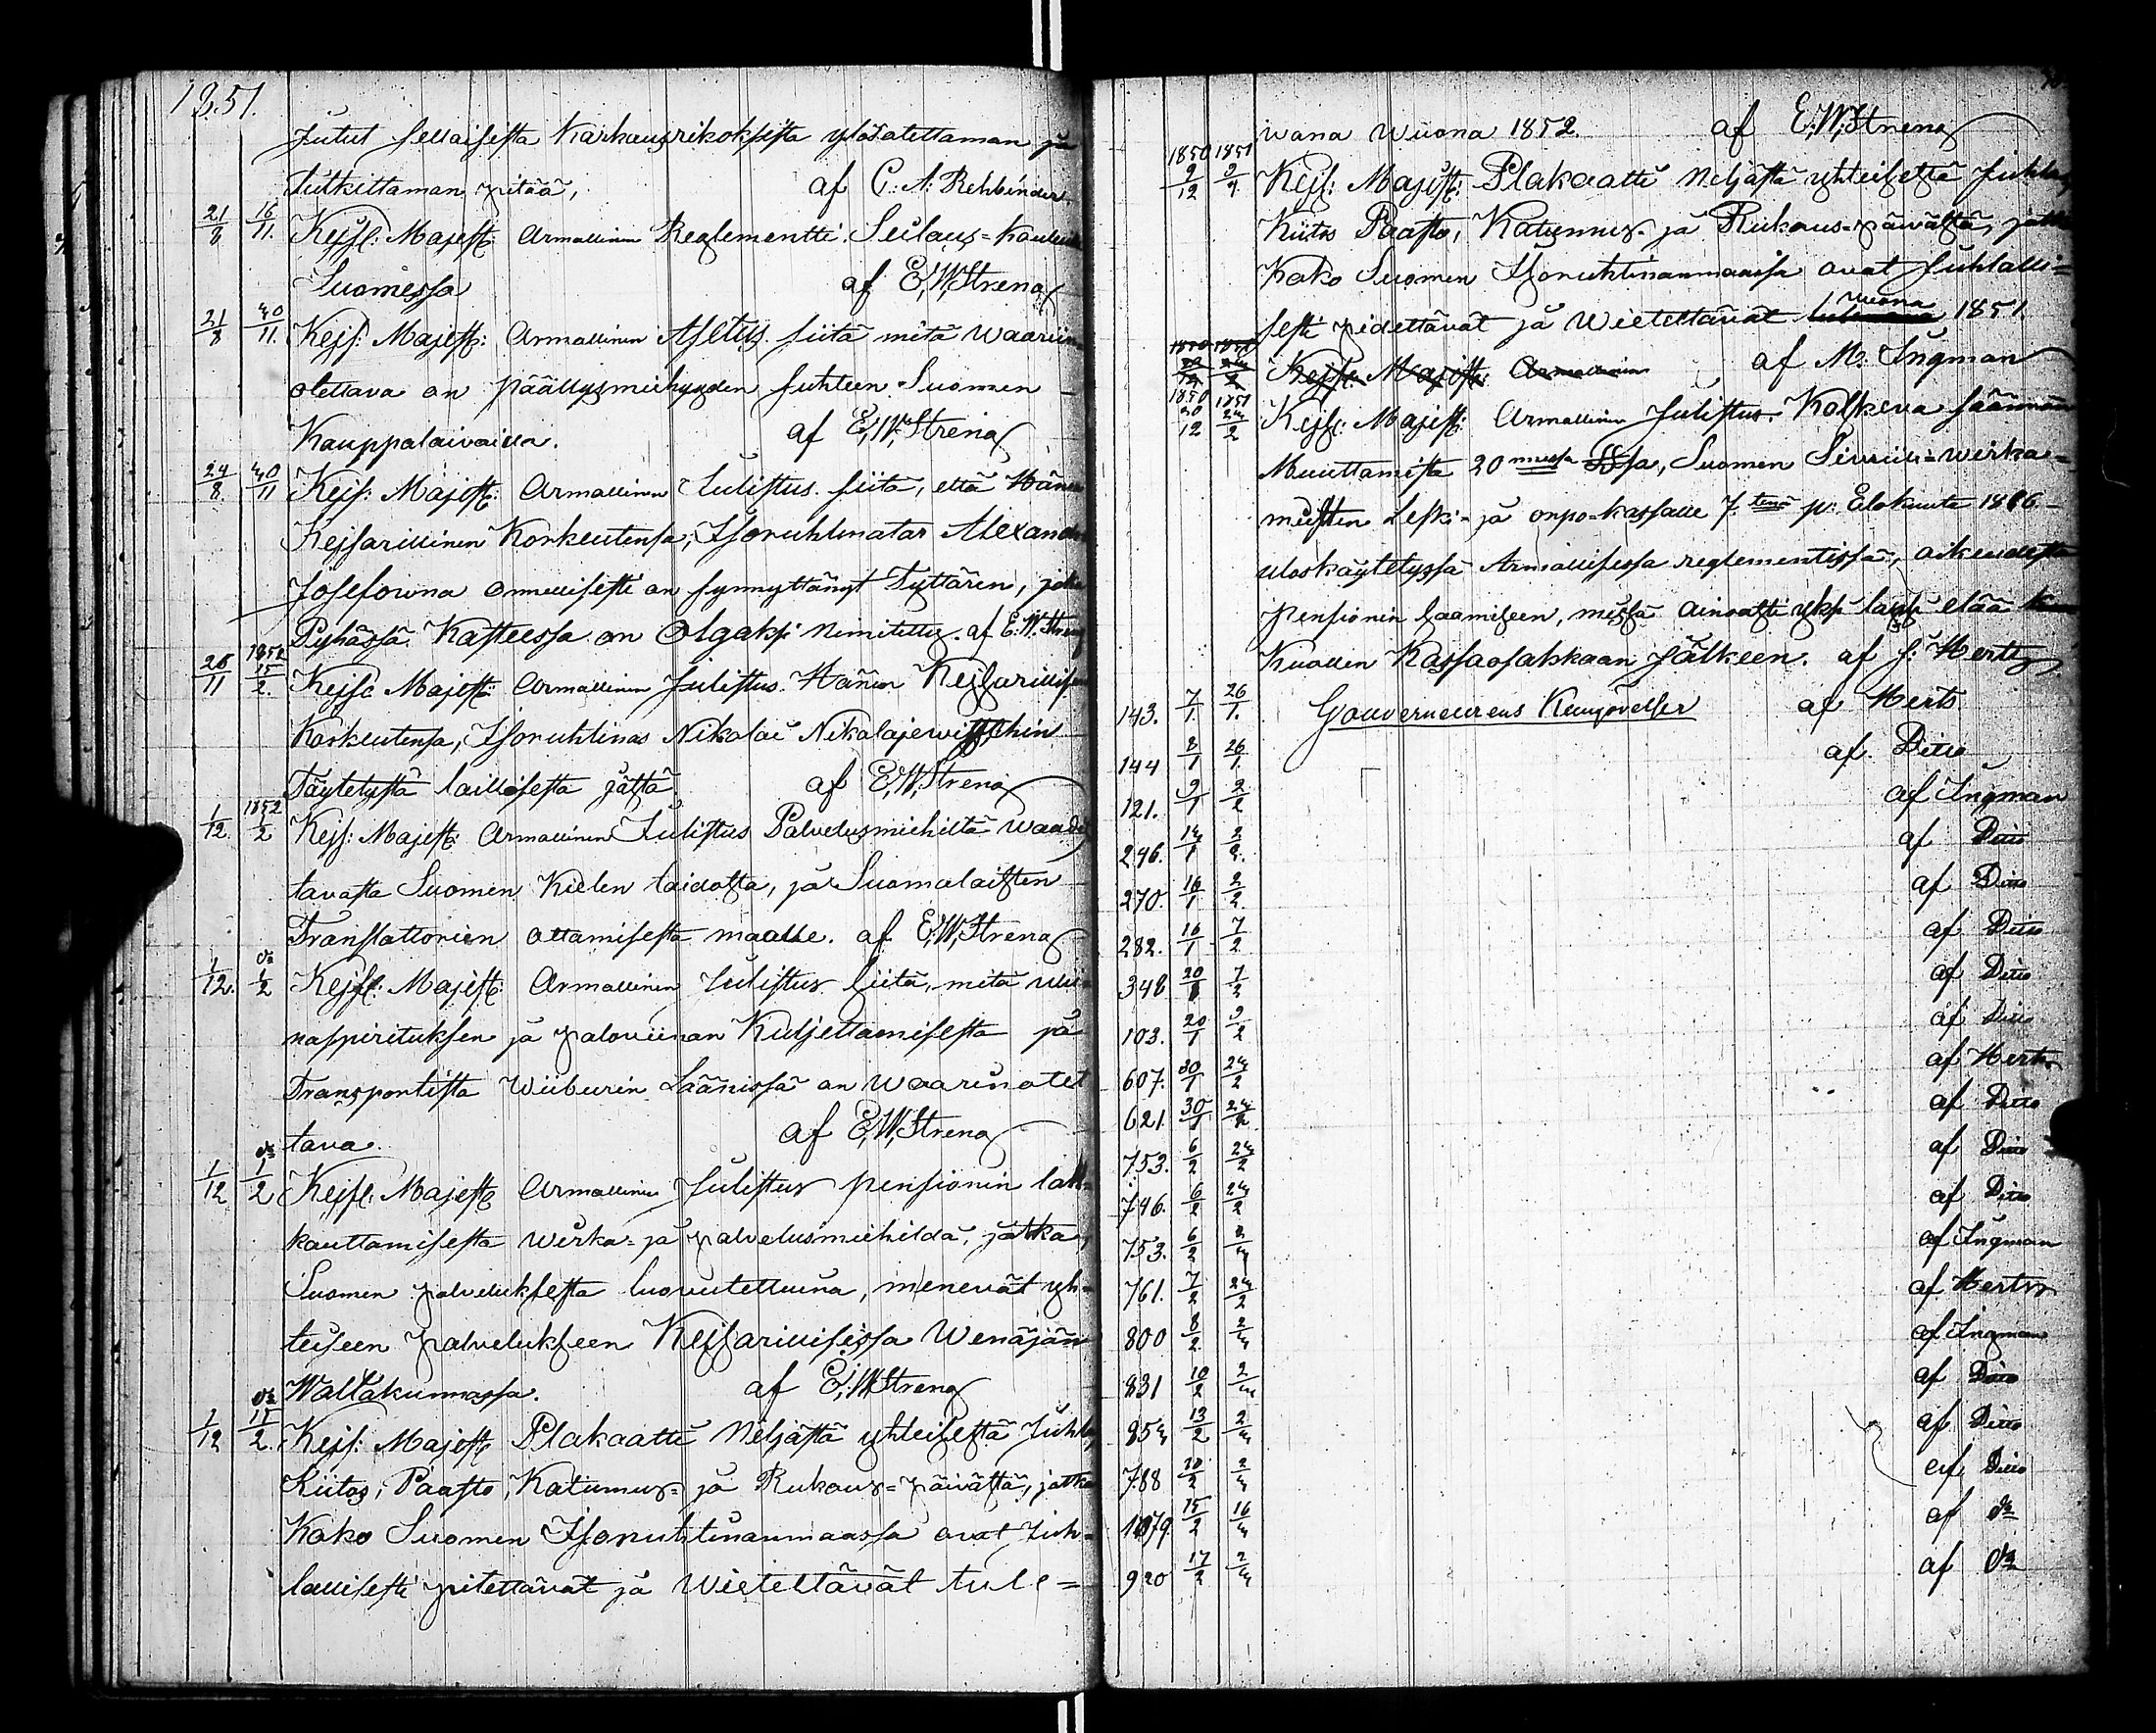 1851.
Jutut sellaisesta Karkausrikoksista ylösatettaman ja
tutkittaman pitää, af C: A: Rehbinder.
21/8 16/11. Kejsl: Majest: Armallinen Reglementti. Seilaus=
Suomessa af E. W. Streng
21/8 20/11. Kejs: Majest: Armallinen Asetus siitä mitä waarin
otettava on päällysmiehyyden suhteen Suomen
Kauppalaivailla. af E. W. Streng
24/8. 20/11 Kejs: Majest: Armallinen Julistus siitä, että Hänen
Kejsarillinen Korkeutensa, Isoruhtinatar Alexandra
Josefowna onnellisesti on synnyttänyt Tyttären, joka
Pyhässä Kasteessa on Olgaksi nimitetty. af E. W. Streng
26/11 1852 15/2. Kejsl Majest: Armallinen Julistus Hänen Kejsarillisen
Korkeutensa, Isoruhtinas Nikolai Nikolajewitschin
Täytetystä laillisesta jästä. af E. W. Streng
1/12. 1852 1/2 Kejs: Majest: Armallinen Julistus Palvelusmiehiltä waadit
tavasta Suomen Kielen taidosta, ja Suomalaisten
Translattorien ottamisesta maalle. af E. W. Streng
1/12. do 1/2 Kejsl: Majest: Armallinen Julistus siitä, mitä wii
nappirituksen ja paloviinan Kuljettamisesta ja
Transportista Wiiburin Läänissä on waarinotet
tava. af E. W. Streng
1/12 do 1/2 Kejsl. Majest: Armallinen Julistus pensionin lak=
kauttamisesta wirka= ja palvelusmiehildä, jotka,
Suomen palveluksesta luovutettuina, menevät yh=
teiseen palvelukseen Kejsarillisissa Wenäjän
Waltakunnassa. af E. W. Streng
1/12 do 15/2. Kejs: Majest: Plakaatti Neljästä yhteisestä Juhla
Kiitos, Paasto, Katumus= ja Rukous=päivästä, jotka
Koko Suomen Isoruhtinanmaassa ovat Juh=
lallisesti pitettävät ja Wietettävät tule=
wana wuona 1852. af E. W. Streng
1850 9/12 1851 Kejs: Majest: Plakaatti Neljästä yhteisestä Juhla
Kiitos Paasto, Katumus- ja Rukous=päivästä, jotka
Koko Suomen Isoruhtinanmaassa ovat Juhlalli=
sesti pidettävät ja Wietettävät wuona 1851
Kejsl: Majest: Armallinen af M. Ingman
1850 30/12 1851 24/2 Kejsl: Majest: Armallinen Julistus. Koskeva säännön
Muuttamista 20 nnessa §§sa, Suomen Siwiili=wirka=
miesten Leski- ja orpo-kassalle 7 tenä p: Elokuuta 1826
uloskäytetyssä Armallisessa reglementissä, oikeudesta
pensionin saamiseen, missä ainoasti yksi lapsi elää
Kuollen Kassaosakkaan jälkeen. af J: Hertz
143. 7/1. 26/1. Gouverneurens Kungörelser af Herts
144 8/1 26/1. af Ditto
121. 9/1 2/2 af Ingman
246. 14/1 2/2. af Ditto
270. 16/1 2/2. af Ditto
282. 16/1 7/2 af Ditto
348 20/1 7/2 af Ditto
103. 20/1 9/2 af Ditto
607. 30/1 24/2 af Herts
621. 30/1 24/2 af Ditto
753. 6/2 24/2 af Ditto
746. 6/2 24/2 af Ditto
753. 6/2 2/4 af Ingman
761. 7/2 24/2 af Herts
800 8/2. 2/4 af Ingman
831 10/2 2/4 af Ditto
854 13/2 2/4 af Ditto
788 10/2 2/4 af Ditto
1079 15/2 16/4 af do
920 17/2 2/4 af do